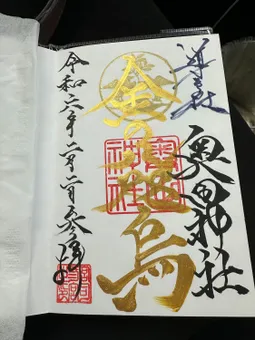 導き社
奥田神社
金の八咫烏
令和六年二月二日参拝